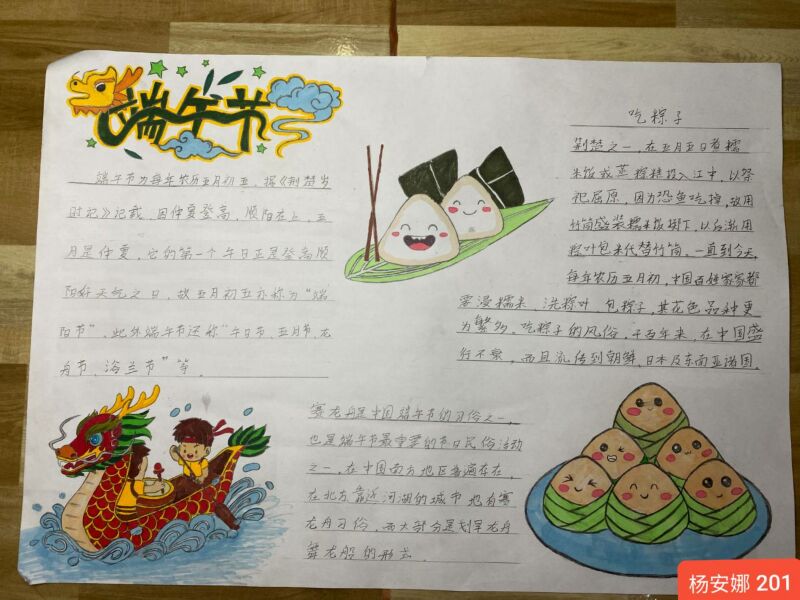 端午节
端午节为每年农历五月初五，据《荆楚岁
时记》记载，因仲夏登高，顺阳在上，五
月是仲夏，它的第一个午日正是登高顺
阳好天气之日，故五月初五亦称为“端
阳节”。此外端午节还称“午日节、五月节、龙
舟节、浴兰节”等。
吃粽子
荆楚之一，在五月五日煮糯
米饭或蒸粽糕投入江中，以祭
祀屈原，因为恐鱼吃掉，故用
竹筒盛装糯米饭掷下，以后渐用
粽叶包米代替竹筒。一直到今天，
每年农历五月初，中国百姓家家都
要浸糯米、洗粽叶、包粽子，其花色品种更
为繁多。吃粽子的风俗，千百年来，在中国盛
行不衰，而且流传到朝鲜、日本及东南亚诸国。
赛龙舟是中国端午节的习俗之一，
也是端午节最重要的节日民俗活动
之一，在中国南方地区普遍存在，
在北方靠近河湖的城市也有赛
龙舟习俗，而大部分是划旱龙舟
舞龙船的形式。
杨安娜 201